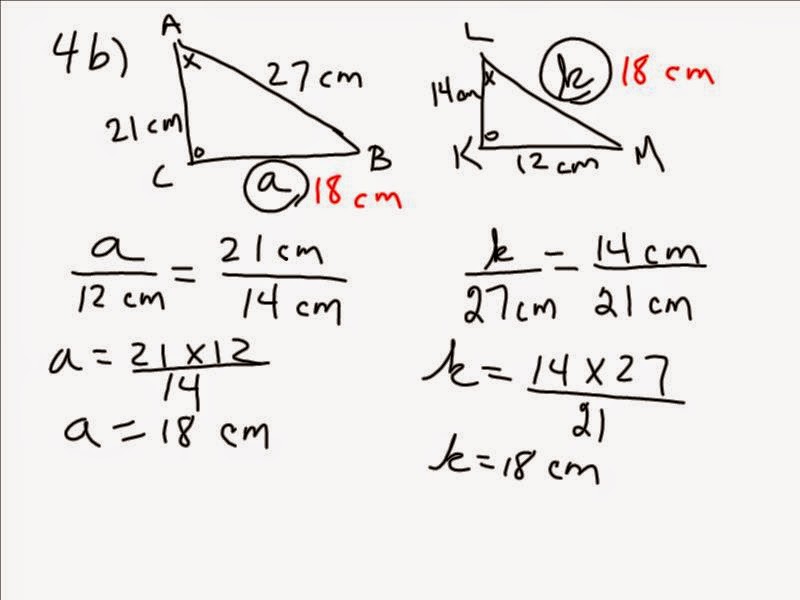 4b)
A
27 cm
21 cm
C
B
a
18 cm
L
k
18 cm
14 cm
K
12 cm
M
x
o
x
o
a / 12 cm = 21 cm / 14 cm
a = 21 x 12 / 14
a = 18 cm
k / 27 cm = 14 cm / 21 cm
k = 14 x 27 / 21
k = 18 cm